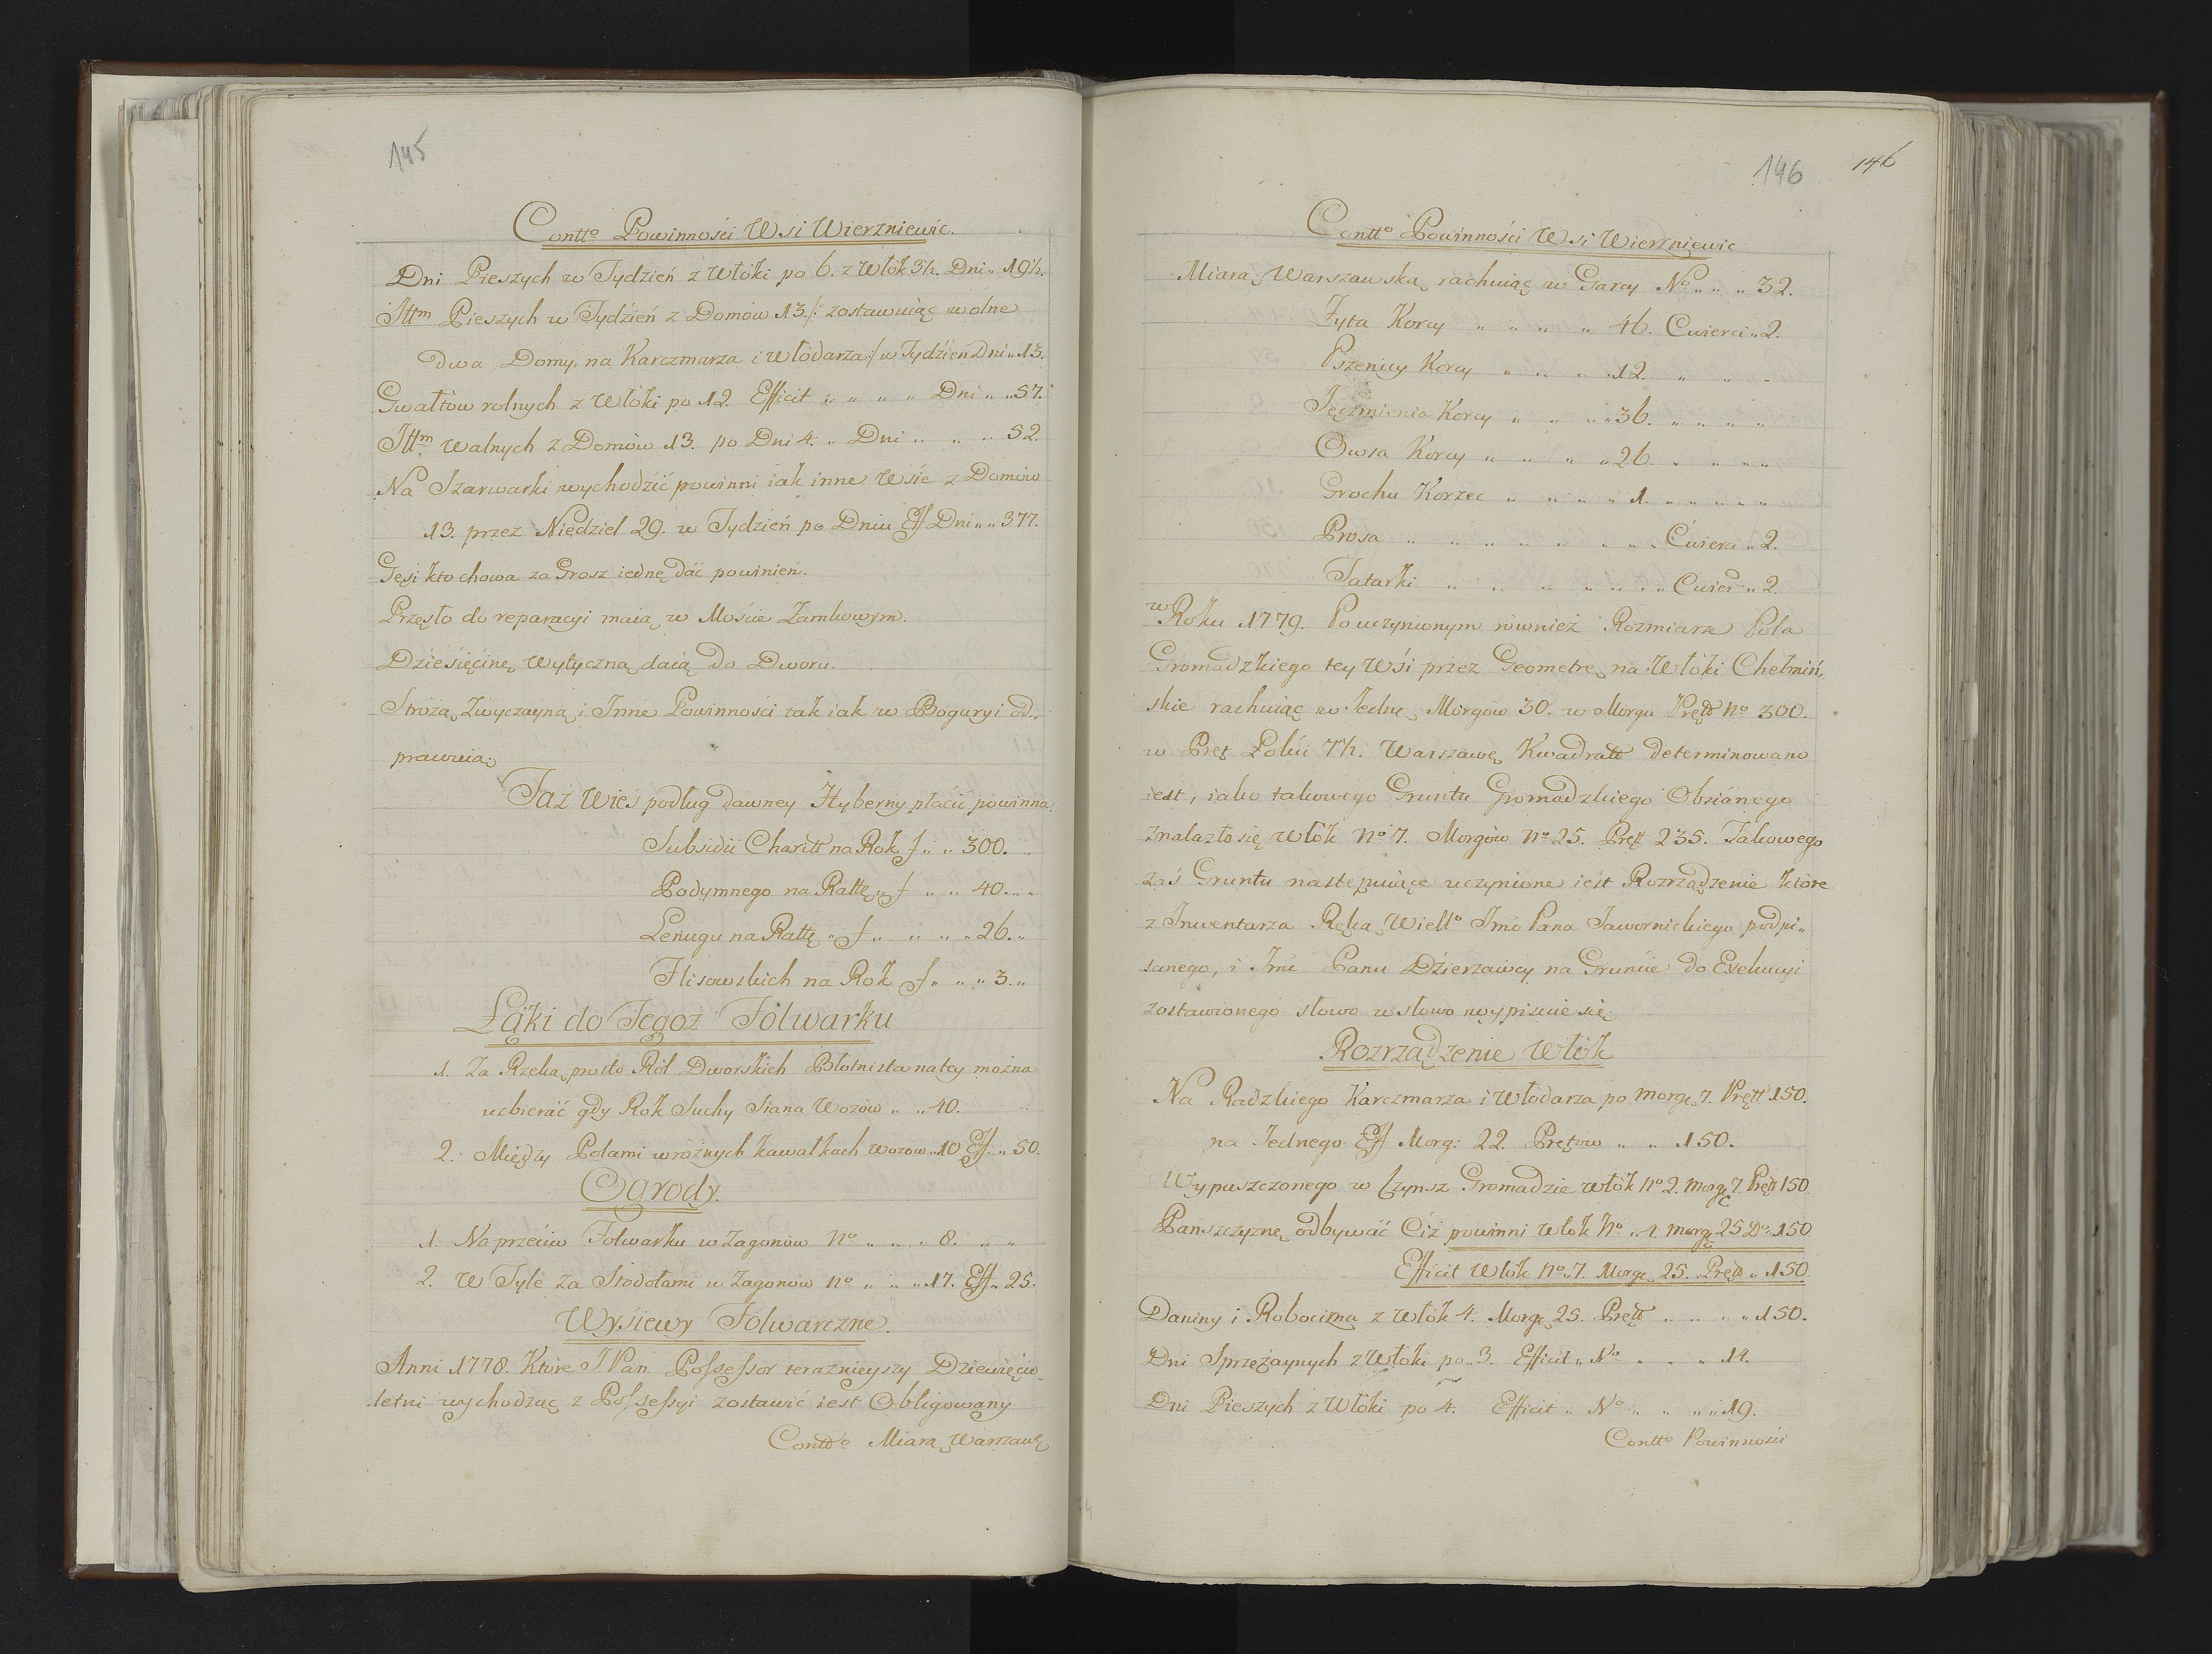 145
Contto Powinności Wsi Wierzniewic.
Dni Pieszych w Tydzień z Włóki po 6. z Włók 3½. Dni „ 19½.
Ittm Pieszych w Tydzień z Domów 13. /: zostawuiąc wolne
dwa Domy, na Karczmarza i Włodarza :/ w Tydzień Dni „ 13.
Gwałtów rolnych z Włóki po 12. Efficit „ „ „ „ Dni „ „ 57.
Ittm walnych z Domów 13. po Dni 4. „ Dni „ „ „ 52.
Na Szarwarki wychodźić powinni iak inne Wsie z Domów
13. przez Niedziel 29. w Tydzień po Dniu Eff Dni „ „ 377.
Gęsi kto chowa za Grosz iednę dać powinien.
Przęsło do reparacyi maią w Moście Zamkowym.
Dziesięcinę Wytyczną daią do Dworu.
Stróżą Zwyczayną i Inne Powinności tak iak w Boguryi od„
prawuią.
Taż Wieś podług dawney Hyberny płacić powinna.
Subsidii Charitt na Rok f „ „ 300.
Podymnego na Rattę „ f „ „ 40. „ „
Lenugu na Rattę „ f „ „ „ „ 26. „
Flisowskich na Rok f „ „ „ 3. „
Łąki do Tegoż Folwarku
1. Za Rzeką prosto Ról Dworskich Błotnista na tey można
uzbierać gdy Rok Suchy Siana Wozów „ „ 40.
2. Między Polami w różnych kawałkach wozów „ 10 Eff. „ 50.
Ogrody.
1. Naprzeciw Folwarku w Zagonów No „ „ „ 8. „ „
2. W Tyle za Stodołami w Zagonów No „ „ „ 17. Eff „ 25.
Wysiewy Folwarczne.
Anni 1778. Które JPan Possessor teraźnieyszy Dziewięcio„
letni wychodząc z Possessyi zostawić iest Obligowany
Contto Miarą Warszawą
146 146
Contto Powinności Wsi Wierzniewic
Miarą Warszawską rachuiąc w Garcy No „ „ „ 32.
Żyta Korcy „ „ „ „ 46. Cwierci „ 2.
Pszenicy Korcy „ „ „ „ 12. „ „ „
Jęczmienia Korcy „ „ „ „ 36. „ „ „ „
Owsa Korcy „ „ „ „ 26. „ „ „ „
Grochu Korzec „ „ „ „ 1. „ „ „ „ „
Prosa „ „ „ „ „ „ „ „ Ćwierci „ 2.
Tatarki „ „ „ „ „ „ „ Cwierci „ 2.
w Roku 1779. Po uczynionym również Rozmiarze Pola
Gromadzkiego tey Wśi przez Geometrę na Włóki Chełmiń„
skie rachuiąc w Jednę Morgów 30. w Morgu Prętt No 300.
w Pręt Łokci 7½. Warszawę Kwadratt determinowano
iest, iako takowego Gruntu Gromadzkiego Obsianego
znalazło się Włók No 7. Morgów No 25. Prętt 235. Takowego
zaś Gruntu następuiące uczynione iest Rozrządzenie które
z Inwentarza Ręką Wiello Imo Pana Jawornickiego podpi„
sanego, i Imć Panu Dzierzawcy na Gruncie do Exekucyi
zostawionego słowo w słowo wypisuie się.
Rozrządzenie Włók
Na Radzkiego Karczmarza i Włodarza po morgę 7. Prętt 150.
na Jednego Eff Morg: 22. Prętów „ „ 150.
Wypuszczonego w Czynsz Gromadzie Włók No 2. morgę 7. Prętt 150
Pańszczyznę odbywać Ciż powinni Włók No „ 4. morgę 25 Do „ 150
Efficit Włók No „ 7. Morgę 25. Prętt „ 150.
Daniny i Robocizna z Włók 4. Morgę 25. Prętt „ „ „ „ 150.
Dni Sprzężaynych z Włóki po „ 3. Efficit „ No „ „ „ 14.
Dni Pieszych z Włóki po 4. Efficit „ No „ „ „ „ 19.
Contto Powinności